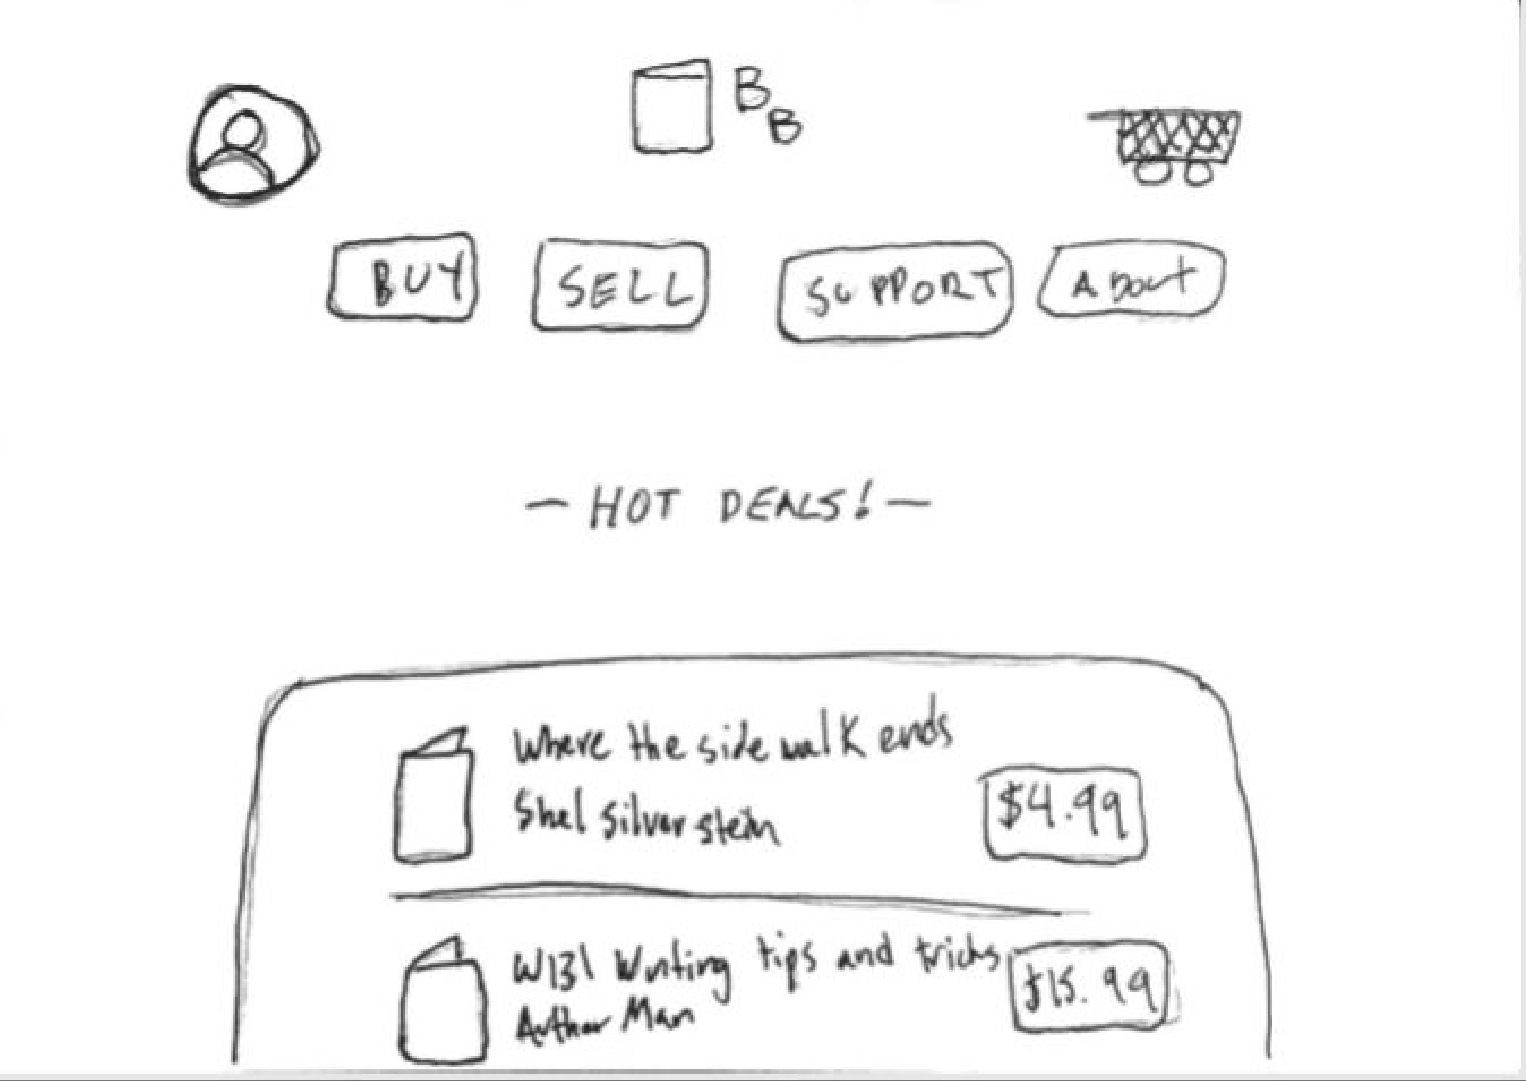 B
B
BUY SELL SUPPORT About
— HOT DEALS! —
Where the sidewalk ends
Shel Silverstein
$4.99
W131 Writing tips and tricks
Author Man
$15.99